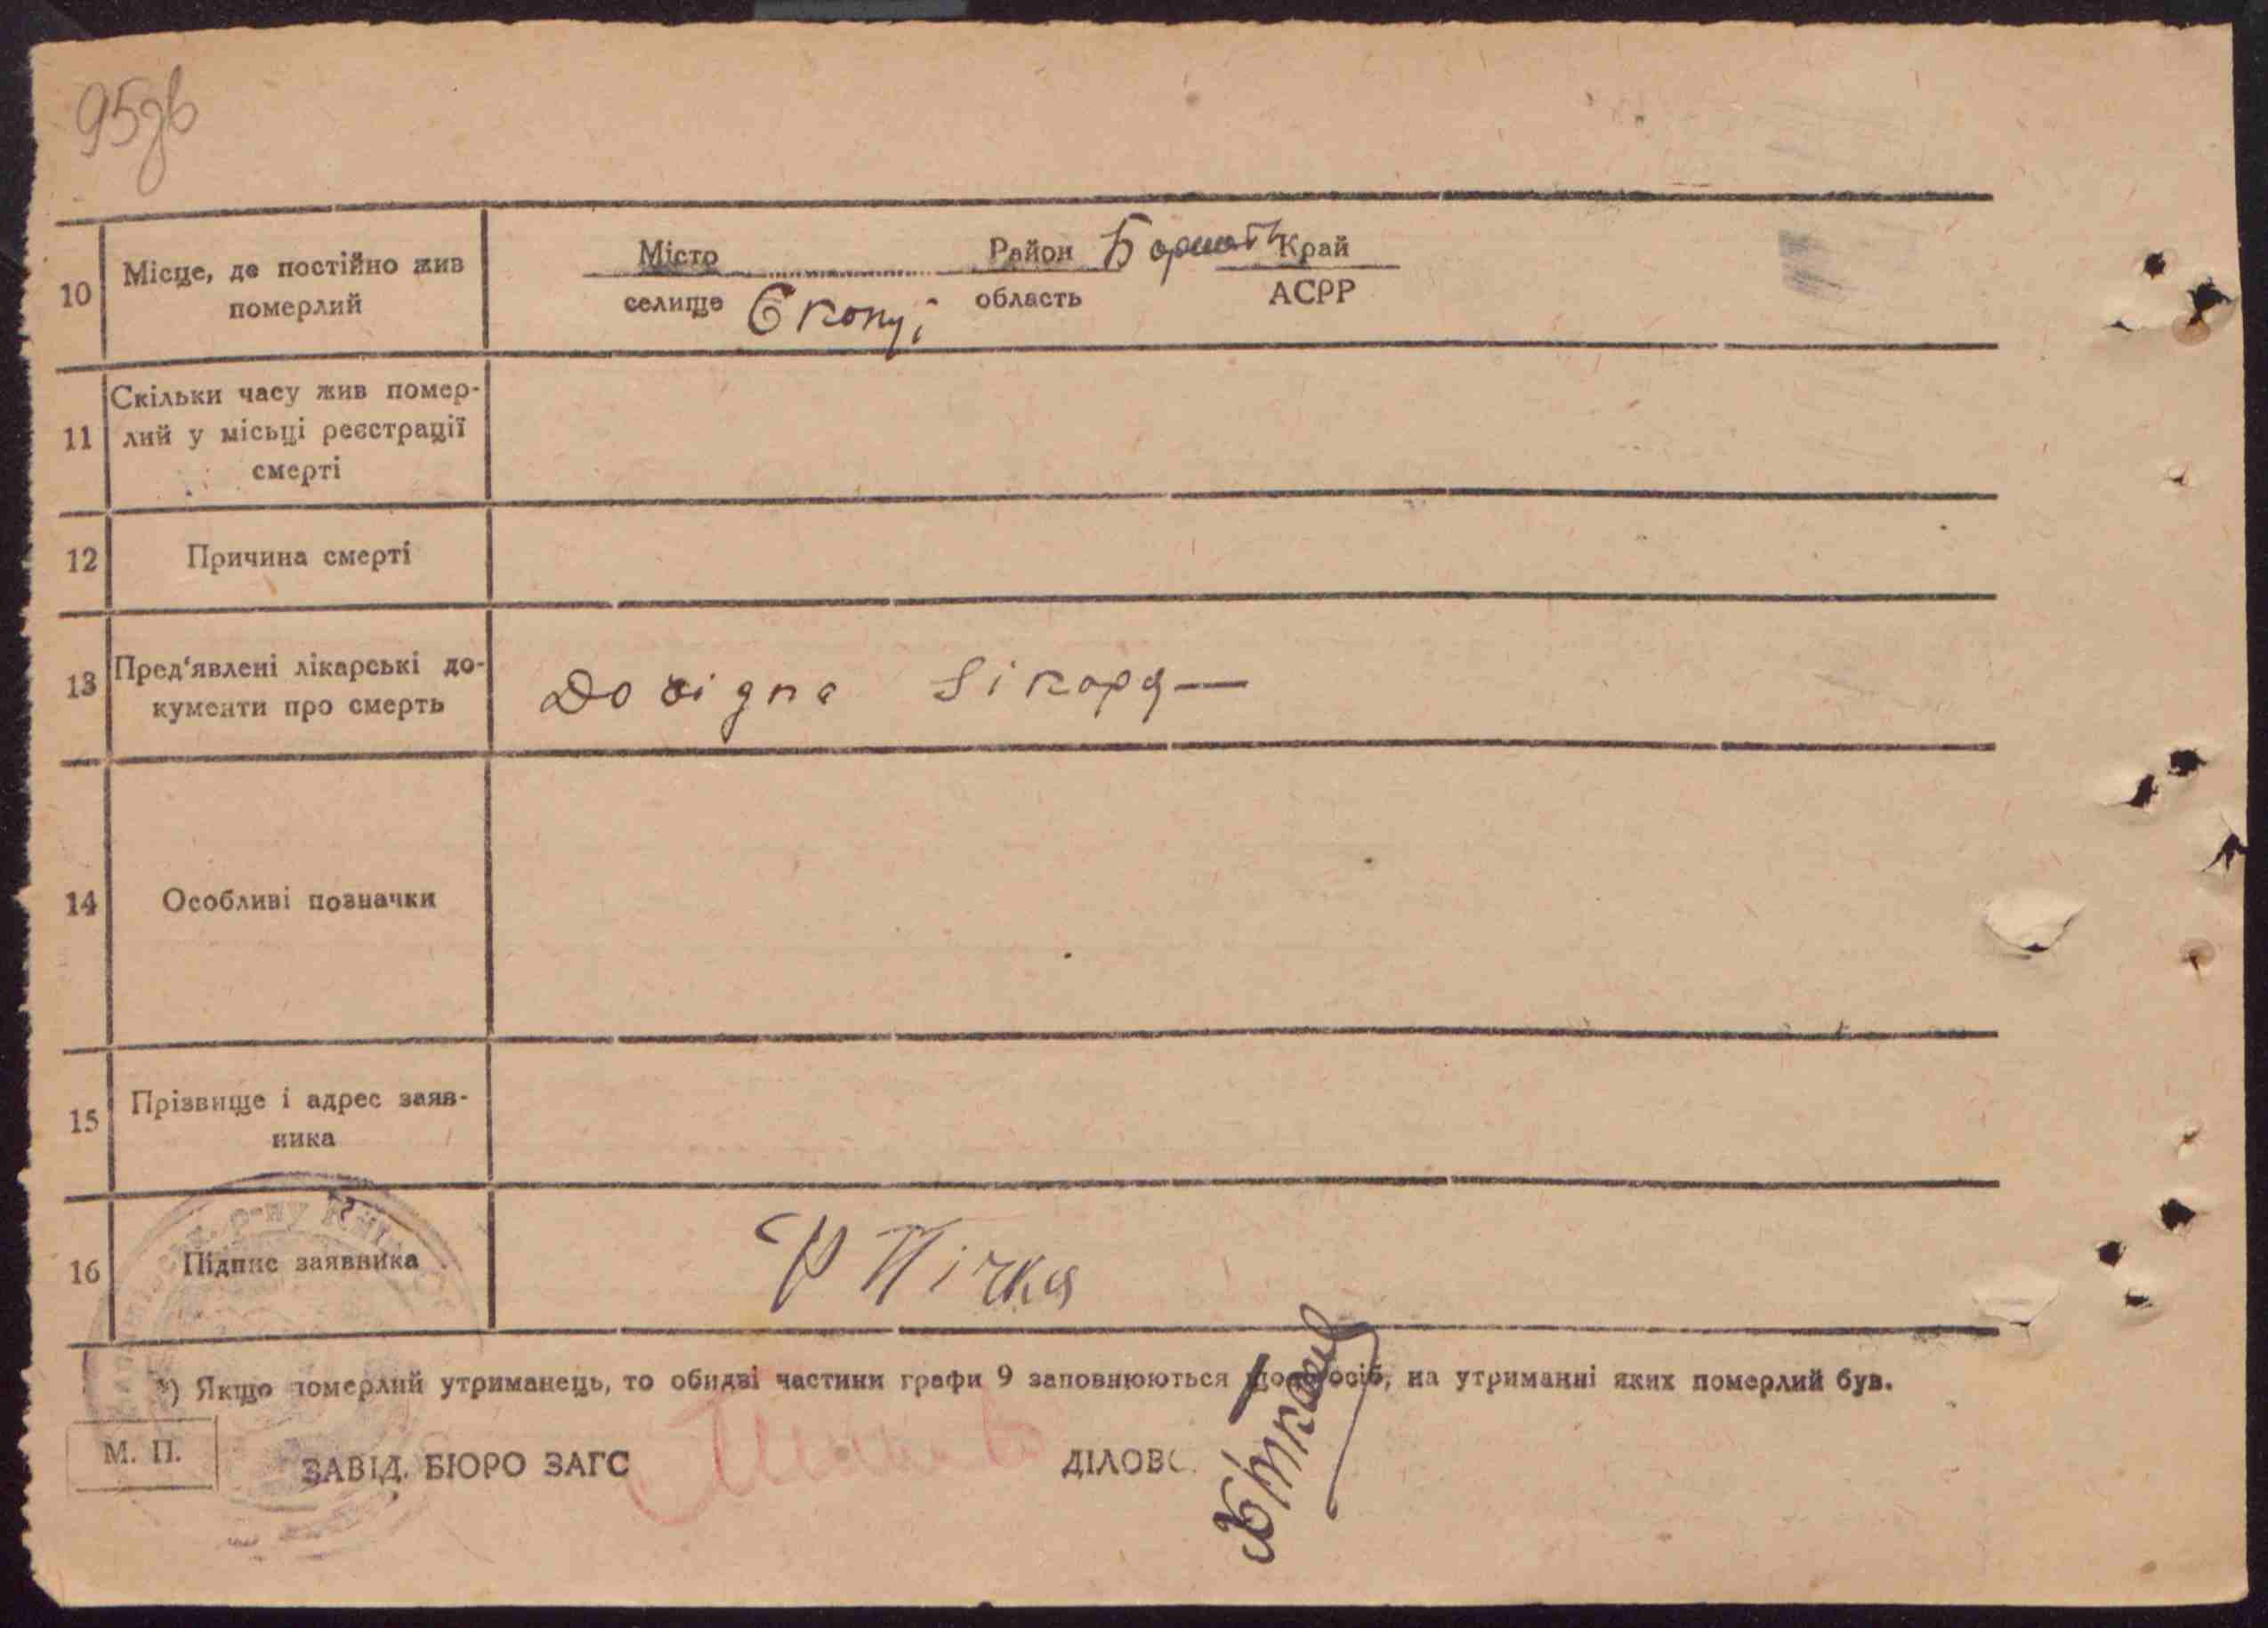 95зв
10 Місце, де постійно жив померлий
Місто Район Край
селище область АСРР
11 Скільки часу жив помер-
лий у місьці реєстрації
смерті
12 Причина смерті
13 Пред'явлені лікарські до-
кументи про смерть
Довідка лікаря
14 Особливі позначки
15 Прізвище і адрес заяв-
ника
16 Підпис заявника
р-ну
*) Якщо померлий утриманець, то обидві частини графи 9 заповнюються щодо осіб, на утриманні яких померлий був.
М. П.
ЗАВІД. БЮРО ЗАГС ДІЛОВ